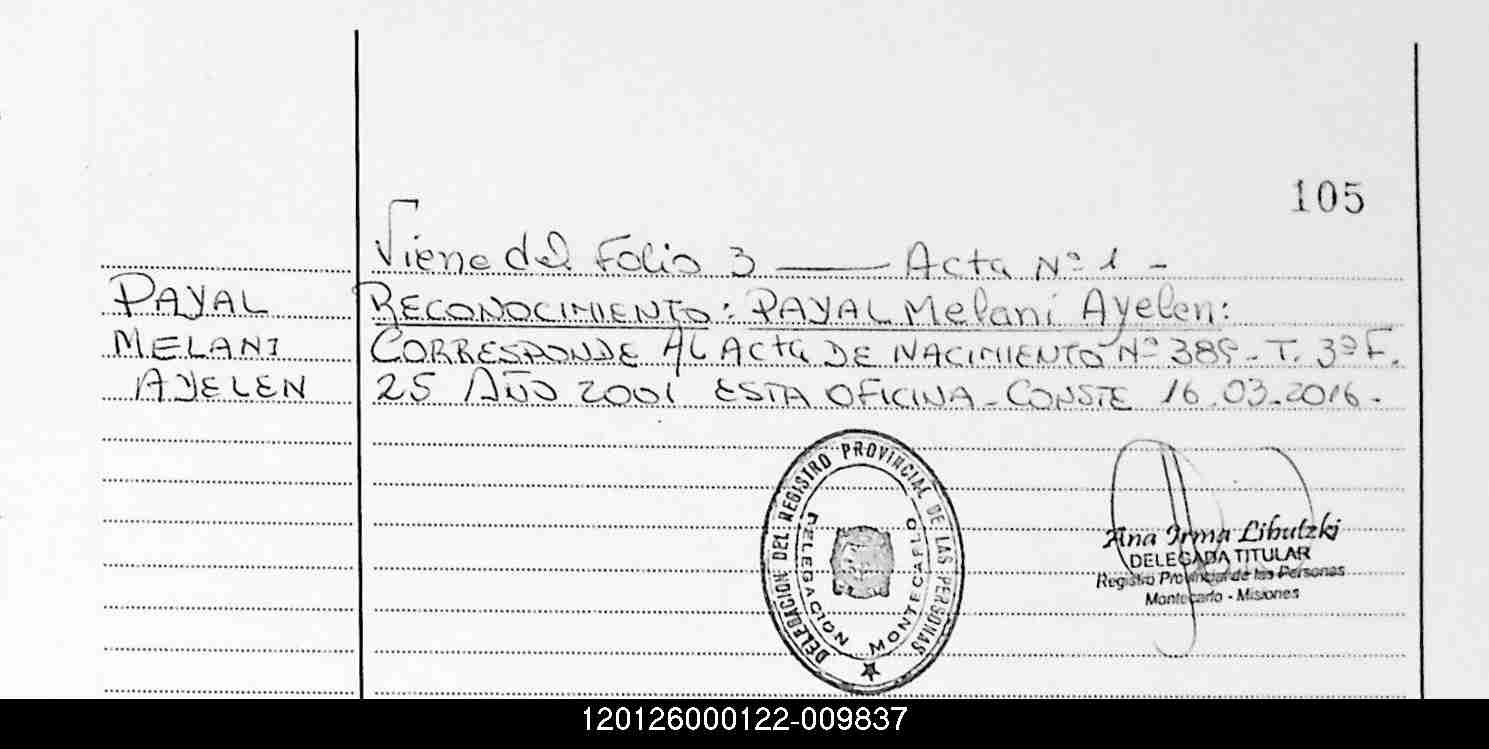 105
Viene del Folio 3 —— Acta Nº 1 -
PAYAL
MELANI
AYELEN
RECONOCIMIENTO: PAYAL Melani Ayelen:
CORRESPONDE AL ACTA DE NACIMIENTO Nº 389 - T. 3º F.
25 AÑO 2001 ESTA OFICINA - CONSTE 16.03.2016.-
DELEGACION DEL REGISTRO PROVINCIAL DE LAS PERSONAS
DELEGACIÓN MONTECARLO
Ana Irma Libutzki
DELEGADA TITULAR
Registro Provincial de las Personas
Montecarlo - Misiones
120126000122-009837